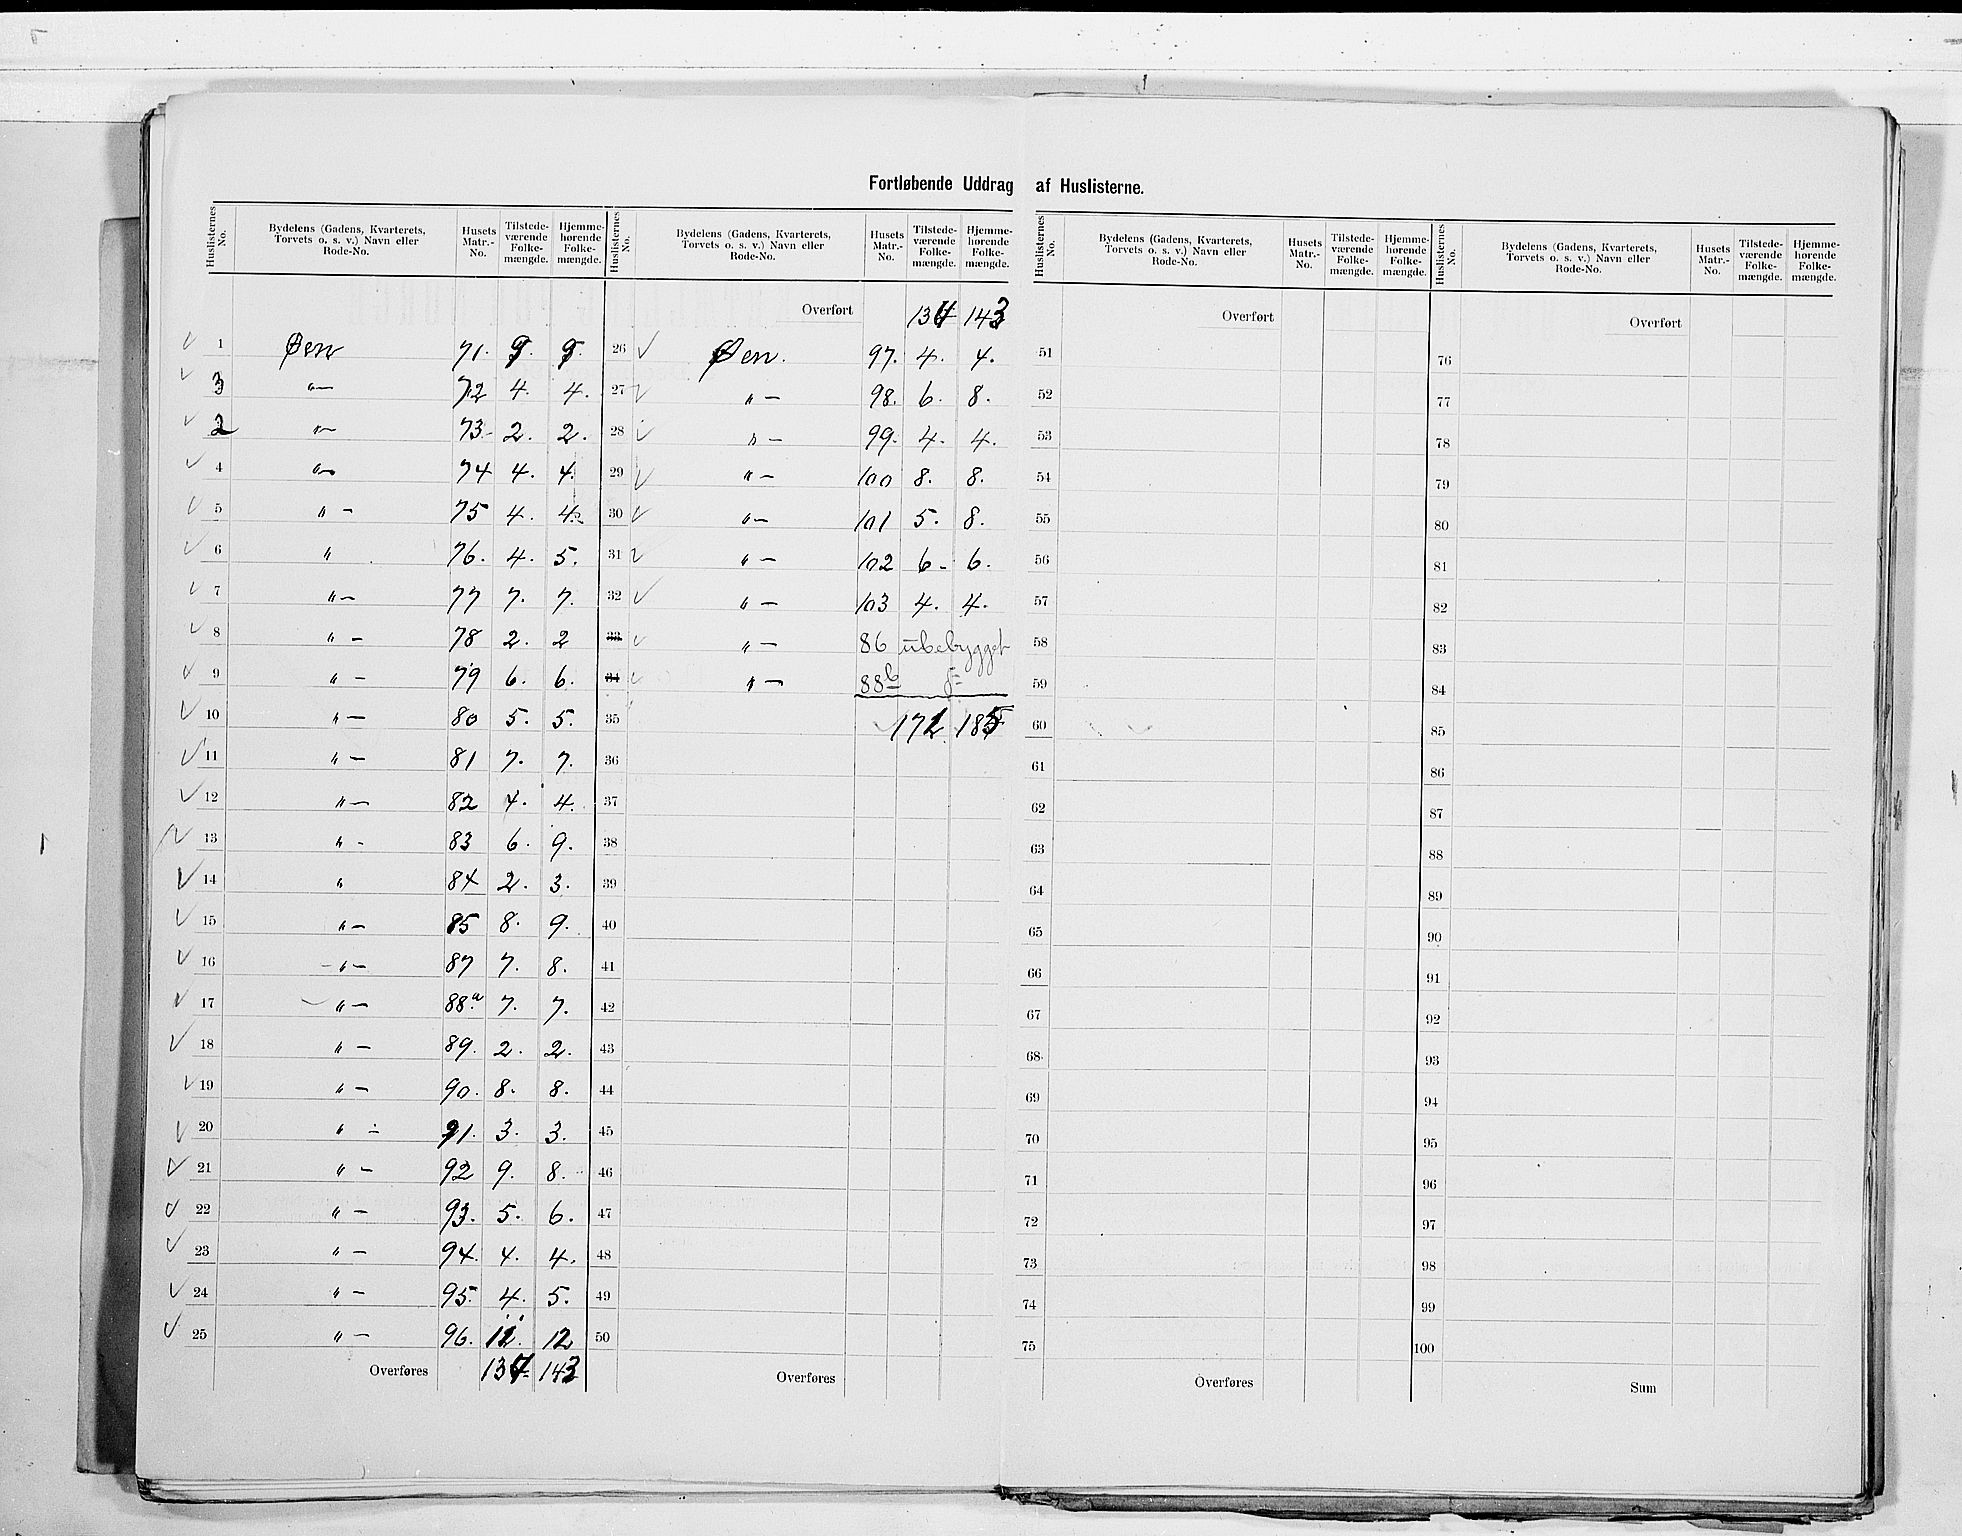 Fortløbende Uddrag af Huslisterne.
Huslisternes No. | Bydelens (Gadens, Kvarterets, Torvets o. s. v.) Navn eller Rode-No. | Husets Matr.-No. | Tilstedeværende Folkemængde. | Hjemmehørende Folkemængde.
1 Øen 71. 9. 9.
3 "— 72 4. 4.
2 "— 73. 2. 2.
4 "— 74 4. 4.
5 "— 75 4. 4.
6 " 76. 4. 5.
7 "— 77 7. 7.
8 "— 78 2. 2
9 "— 79 6. 6.
10 "— 80 5. 5.
11 "— 81 7. 7.
12 "— 82 4. 4.
13 "- 83 6. 9.
14 " 84 2. 3.
15 "— 85 8. 9.
16 "— 87 7. 8.
17 "— 88a 7. 7.
18 "— 89. 2. 2.
19 "— 90. 8. 8.
20 "— 91. 3. 3.
21 "— 92 9. 8.
22 "— 93. 5. 6.
23 "— 94. 4. 4.
24 "— 95. 4. 5.
25 "— 96. 12
Overføres 143
Huslisternes No. | Bydelens (Gadens, Kvarterets, Torvets o. s. v.) Navn eller Rode-No. | Husets Matr.-No. | Tilstedeværende Folkemængde. | Hjemmehørende Folkemængde.
Overført 143
26 Øen. 97. 4. 4.
27 "— 98. 6. 8.
28 "— 99. 4. 4.
29 "— 100 8. 8.
30 "— 101 5. 8.
31 "— 102 6- 6.
32 "— 103 4. 4.
33 "— 86 ubebygget
34 "— 88b
35 171 185
36
37
38
39
40
41
42
43
44
45
46
47
48
49
50
Overføres
Huslisternes No. | Bydelens (Gadens, Kvarterets, Torvets o. s. v.) Navn eller Rode-No. | Husets Matr.-No. | Tilstedeværende Folkemængde. | Hjemmehørende Folkemængde.
Overført
51
52
53
54
55
56
57
58
59
60
61
62
63
64
65
66
67
68
69
70
71
72
73
74
75
Overføres
Huslisternes No. | Bydelens (Gadens, Kvarterets, Torvets o. s. v.) Navn eller Rode-No. | Husets Matr.-No. | Tilstedeværende Folkemængde. | Hjemmehørende Folkemængde.
Overført
76
77
78
79
80
81
82
83
84
85
86
87
88
89
90
91
92
93
94
95
96
97
98
99
100
Sum